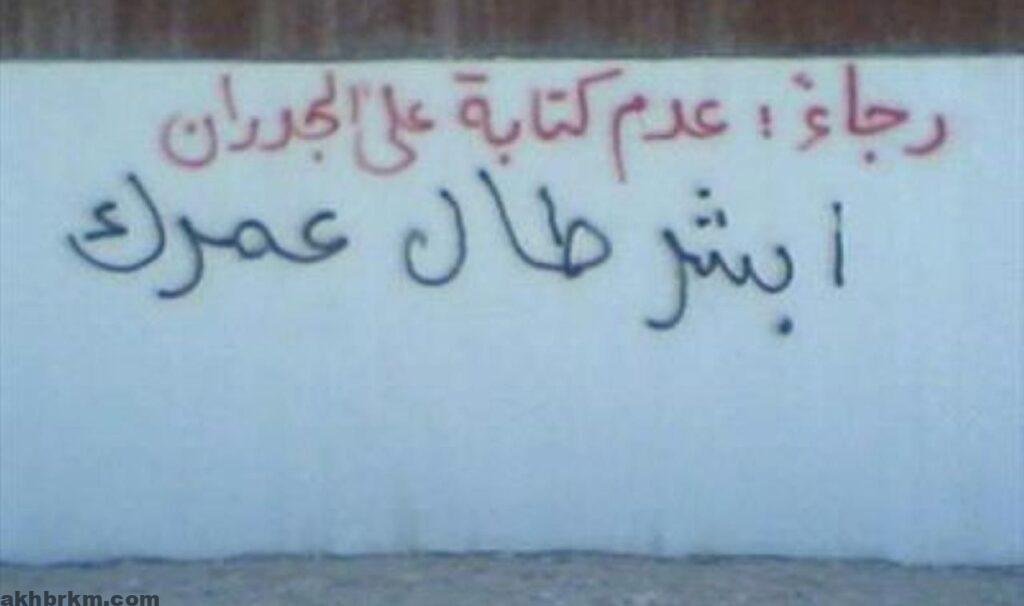 رجاءً : عدم كتابة على الجدران
ابشر طال عمرك
akhbrkm.com